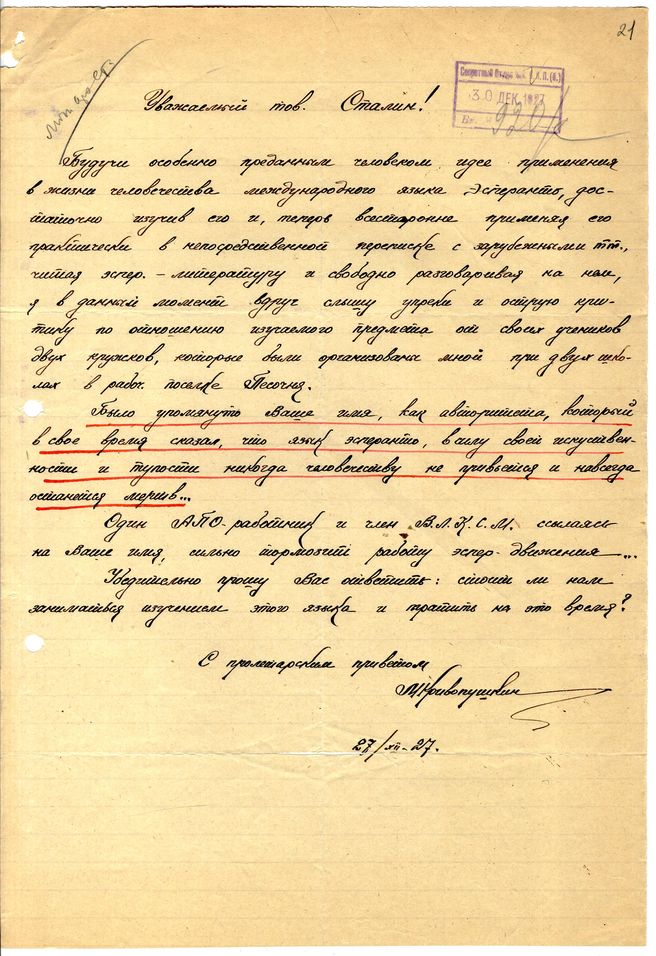 21
Секретный Отдел Ц.К. В.К.П.(б.)
30 ДЕК. 1927
Вх. №
Уважаемый тов. Сталин!
Будучи особенно преданным человеком идее применения
в жизни человечества международного языка Эсперанто, дос-
таточно изучив его и, теперь всесторонне применяя его
практически в непосредственной переписке с зарубежными тт.,
читая эспер.-литературу и свободно разговаривая на нем,
я в данный момент вдруг слышу упреки и острую кри-
тику по отношению изучаемого предмета от своих учеников
двух кружков, которые были организованы мной при двух шко-
лах в рабоч. поселке Песочня.
Было упомянуто Ваше имя, как авторитета, который
в свое время сказал, что язык эсперанто, в силу своей искуствен-
ности и тупости никогда человечеству не привьется и навсегда
останется мертв...
Один АПО-работник и член В.Л.К.С.М. ссылаясь
на Ваше имя, сильно тормозит работу эспер-движения...
Убедительно прошу Вас ответить: стоит ли нам
заниматься изучением этого языка и тратить на это время?
С пролетарским приветом
М Кривопушкин
27/XII-27.